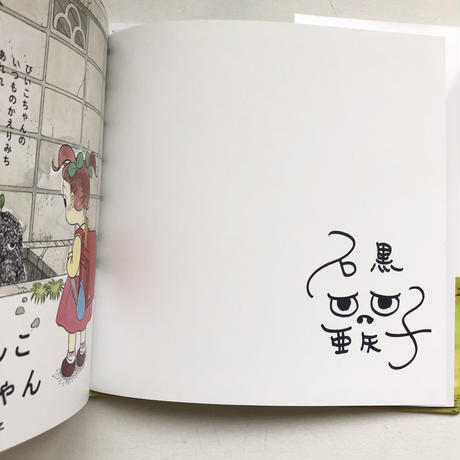 ぴいこちゃんの
いつものかえりみち
あれれ
んこ
ちゃん
石黒
亜矢子